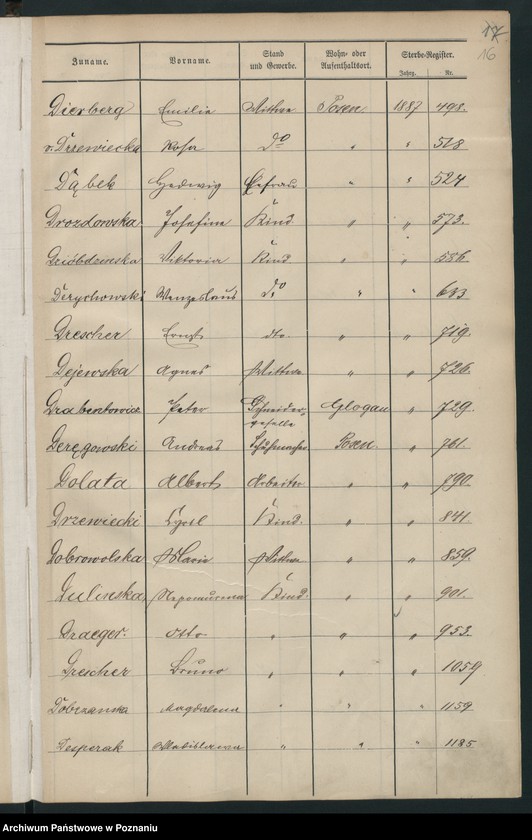 17
16
Zuname. Vorname. Stand und Gewerbe. Wohn- oder Aufenthaltsort. Sterbe-Register.
Jahrg. Nr.
Dierberg Emilie Wittwe Posen 1887 498.
v. Drzewiecka Rosa do " " 518
Dąbek Hedwig Ehefrau " " 524
Drozdowska Josefine Kind " " 573.
Viktoria Kind " " 586.
Derychowski Wenzeslaus do " " 633
Drescher Ernst dto. " " 719.
Dejewska Agnes Wittwe " " 726.
Drabentowicz Peter Schneidergeselle Glogau " 729.
Deręgowski Andreas Schuhmacher Posen. " 761.
Dolata Albert Arbeiter " " 790.
Drzewiecki Cyril Kind. " " 841.
Dobrowolska Marie Wittwe " " 859.
Dulinska Nepomucena Kind. " " 901.
Draeger. Otto " " " 953.
Drescher Bruno " " " 1059
Dobrzanska Magdalena " " " 1159
Desperak " " " 1185
Archiwum Państwowe w Poznaniu